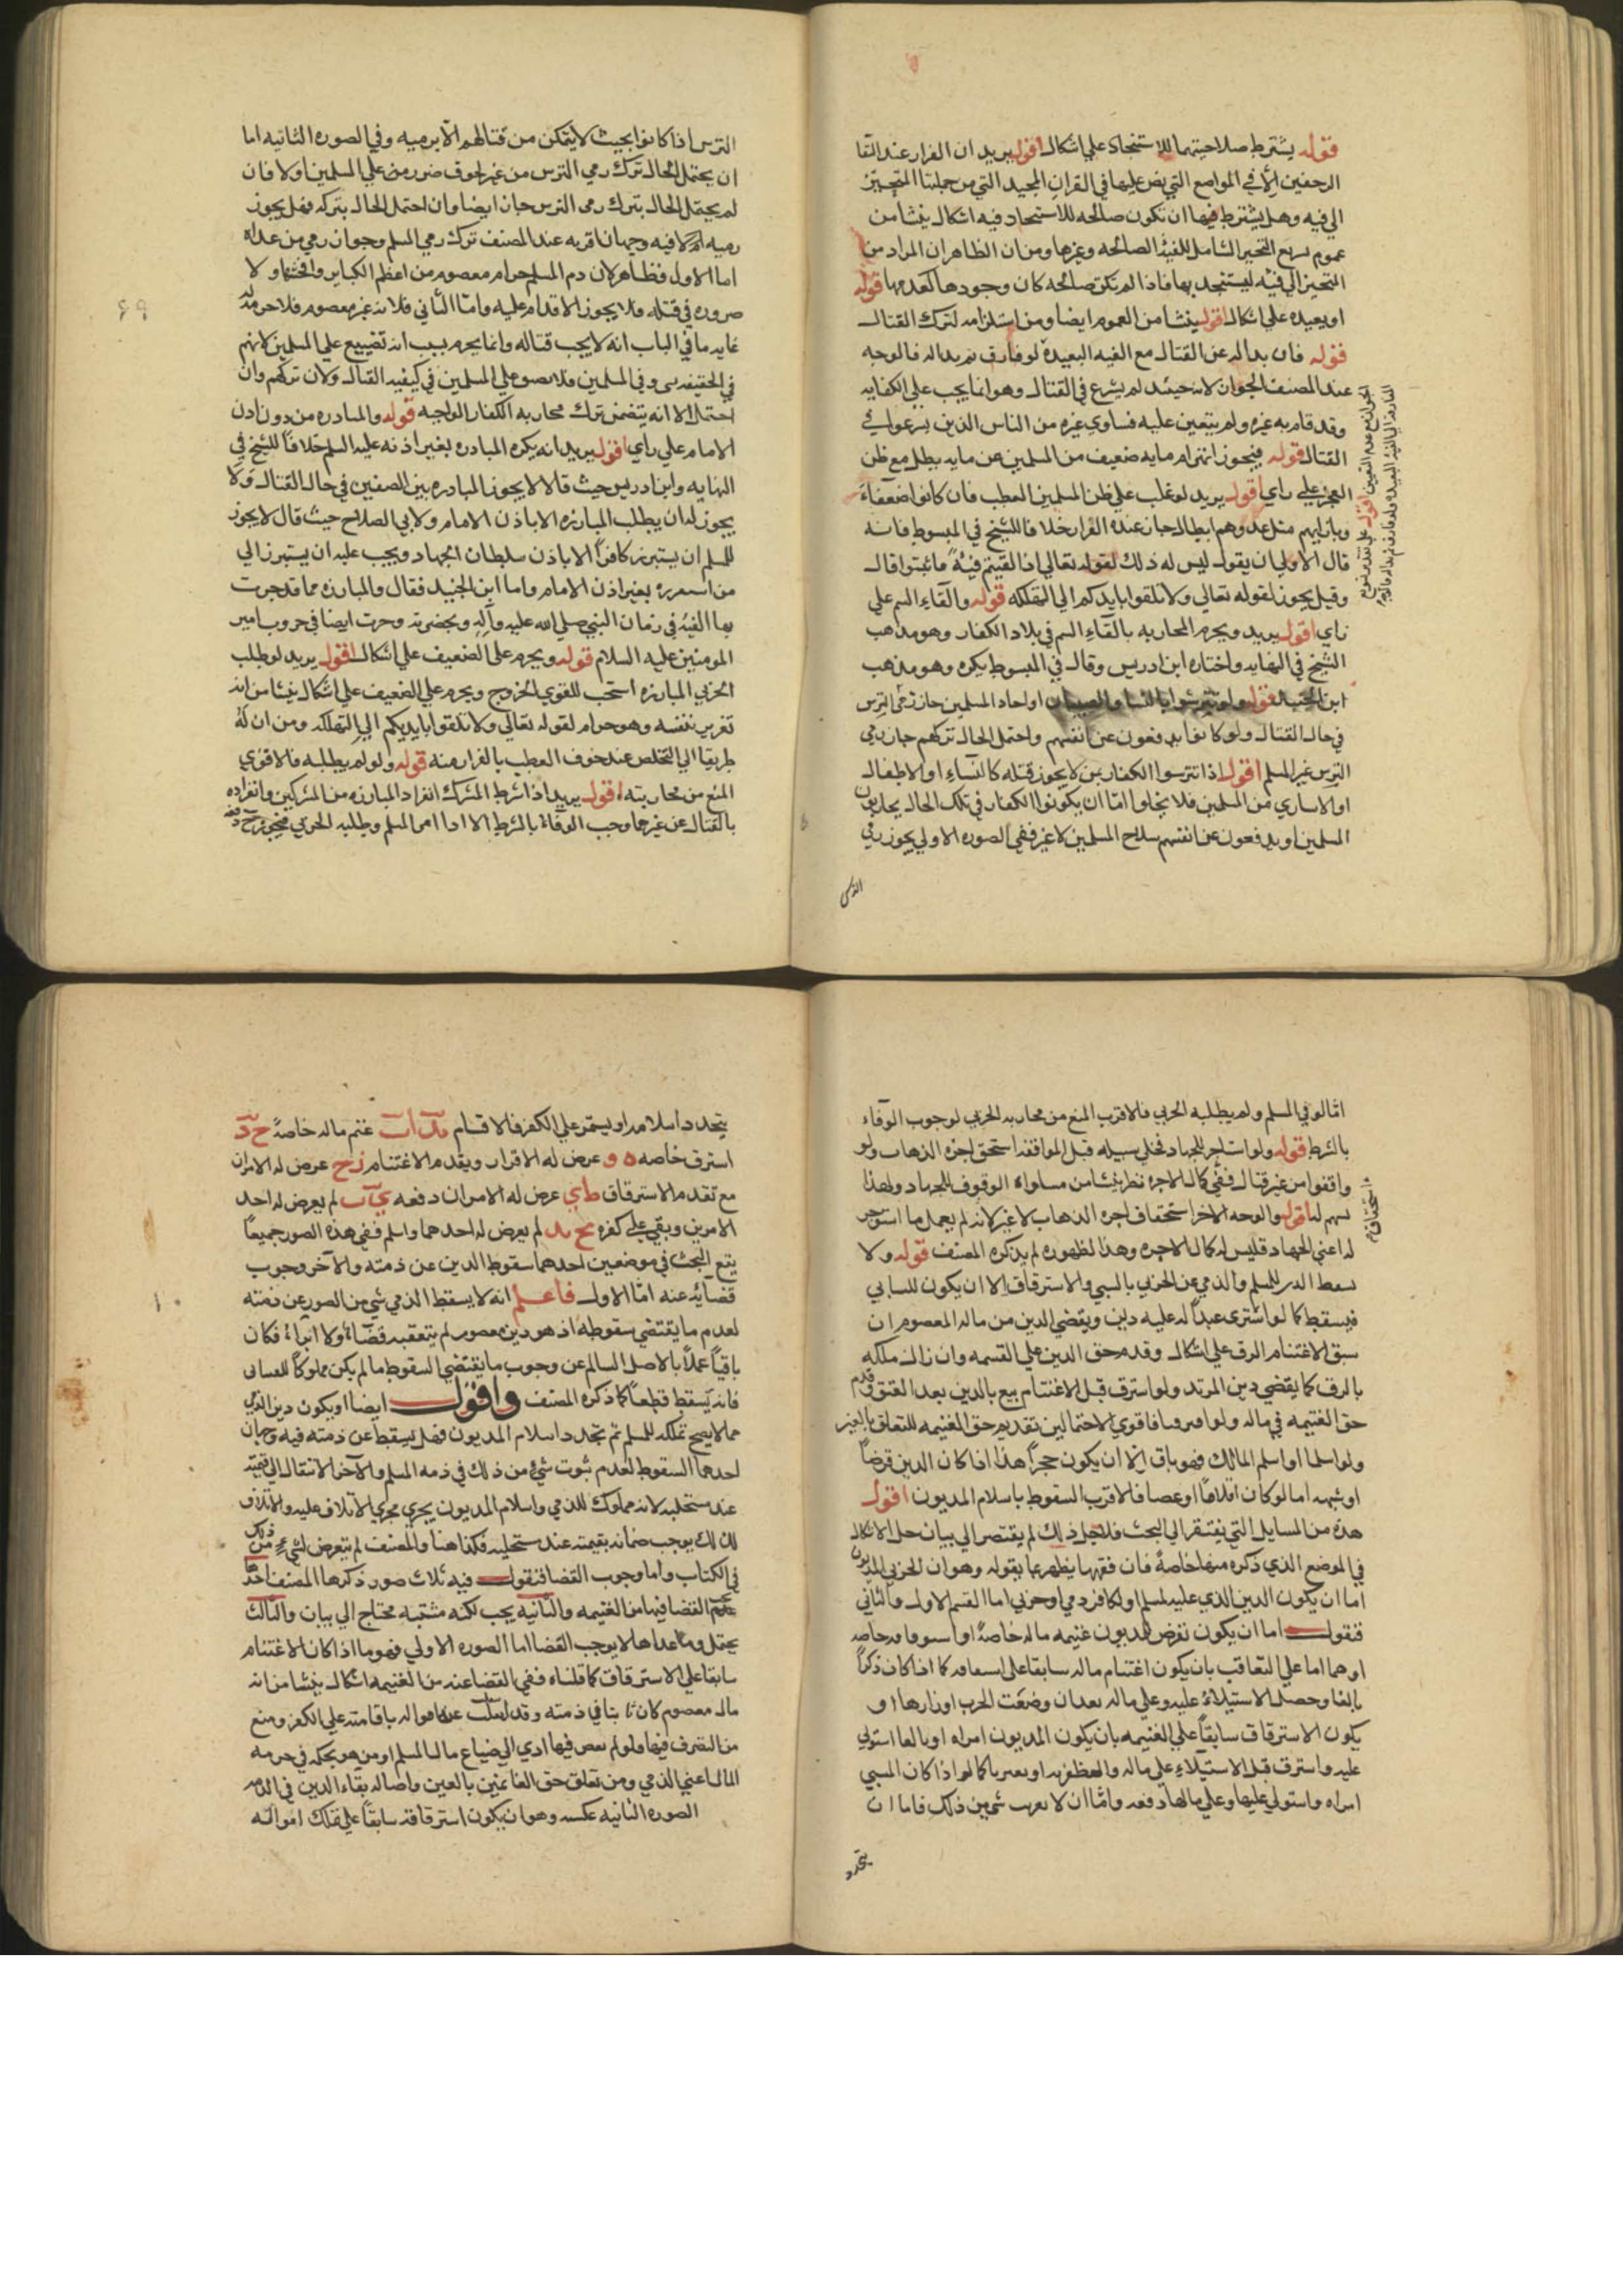 قوله يشترط صلاحيتهما للاستنجاد على اشكال اقول يريد ان الفرار عند التقا
الزحفين الا في المواضع التي نص عليها في القران المجيد التي من جملتها المتحيز
الى فيه وهل يشترط فيها ان تكون صالحه للاستنجاد فيه اشكال ينشا من
عموم التحيز الشامل للفئة الصالحه وغيرها ومن ان الظاهر ان المراد من
التحيز الى فيئه ليستنجد بها فاذا لم تكن صالحه كان وجودها كعدمها قوله
او بعيده على اشكال اقول ينشا من العموم ايضا ومن استلزامه لترك القتال
قوله فان بدا له عن القتال مع الفيه البعيدة لو فارق ثم بدا له فالوجه
عند المصنف الجواز لانه حينئد لم يشرع في القتال وهو انما يجب على الكفايه
وقد قام به غيره ولم يتعين عليه فساوى غيره من الناس الذين لم يشرعوا في
القتال قوله فيجوز انهزام مايه ضعيف من المسلمين عن مايه بطل مع ظن
العجز على راي اقول يريد لو غلب على ظن المسلمين العطب فان كانوا ضعفاء
وبازايهم مثل عددهم ابطال جاز عنده الفرار خلافا للشيخ في المبسوط فانه
قال الاولى ان يقول ليس له ذلك لقوله تعالى اذا لقيتم فئةً فاثبتوا قال
وقيل يجوز لقوله تعالى ولا تلقوا بايديكم الى التهلكه قوله والقاء السم على
راي اقول يريد ويحرم المحاربه بالقاء السم في بلاد الكفار وهو مذهب
الشيخ في النهايه واختاره ابن ادريس وقال في المبسوط يكره وهو مذهب
ابن الجنيد قوله ولو تترسوا بالنساء والصبيان او احاد المسلمين جاز رمى الترس
في حال القتال ولو كانوا يدفعون عن انفسهم واحتمل الحال تركهم جاز رمي
الترس غير المسلم اقول اذا تترسوا الكفار بمن لا يجوز قتله كالنساء او الاطفال
او الاسارى من المسلمين فلا يخلوا امّا ان يكونوا الكفار في تلك الحال يحاربون
المسلمين او يدفعون عن انفسهم سلاح المسلمين لا غير ففي الصوره الاولى يجوز رمي
الترس
الترس اذا كانوا بحيث لا يتمكن من قتالهم الا برميه وفي الصوره الثانيه اما
ان يحتمل الحال ترك رمي الترس من غير لحوق ضرر منه على المسلمين اولا فان
لم يحتمل الحال بترك رمى الترس جاز ايضا وان احتمل الحال بتركه فهل يجوز
رميه ام لا فيه وجهان اقربه عند المصنف ترك رمي المسلم وجواز رمي من عداه
اما الاول فظاهر لان دم المسلم حرام معصوم من اعظم الكباير وافحشها ولا
ضروره في قتله فلا يجوز الاقدام عليه وامّا الثاني فلانه غير معصوم فلا حرمة له
غايه ما في الباب انه لا يجب قتاله وانما يحرم بسبب انه تضييع على المسلمين لانهم
في الحقيقه في المسلمين فلا على المسلمين في كيفيه القتال ولان تركهم وان
احتمل الا انه يتضمن ترك محاربه الكفار الواجبه قوله والمبادره من دون اذن
الامام على راي اقول يريد انه يكره المبادره بغير اذنه عليه السلم خلافا للشيخ في
النهايه وابن ادريس حيث قالا لا يجوز المبادره بين الصفين في حال القتال ولا
يجوز له ان يطلب المبارزه الا باذن الامام ولابي الصلاح حيث قال لا يجوز
للمسلم ان يستبرز كافراً الا باذن سلطان الجهاد ويجب عليه ان يستبرز الى
من بغير اذن الامام واما ابن الجنيد فقال والمبارزه مما قد جرت
بها الفيه في زمان النبي صلى الله عليه وآله وبحضرته وجرت ايضا في حروب امير
المومنين عليه السلام قوله ويحرم على الضعيف على اشكال اقول يريد لو طلب
الحربي المبارزه استحب للقوي الخروج ويحرم على الضعيف على اشكال ينشا من انه
تغرير بنفسه وهو حرام لقوله تعالى ولا تلقوا بايديكم الى التهلكه ومن ان له
طريقا الى التخلص عند خوف العطب بالفرار منه قوله ولو لم يطلبه فالاقوى
المنع من محاربته اقول يريد اذا شرط المشرك انفراد المبارزه من المشركين وانفراده
بالقتال عن غيرها وجب الوفاء بالشرط الا اذا المسلم وطلبه الحربي فيجوز ح دفعه
امّا لو فر المسلم ولم يطلبه الحربي فالاقرب المنع من محاربه الحربي لوجوب الوفاء
بالشرط قوله ولو استاجر للجهاد فخلى سبيله قبل الموافقه استحق اجره الذهاب ولو
وافقوا من غير قتال ففي كمال الاجره نظر ينشا من مساواه الوقوف للجهاد ولهذا
يسهم له اقول والوجه الاخر استحقاق اجره الذهاب لا غير لانه لم يعمل ما استوجر
له اعني الجهاد فليس له كمال الاجره وهذا لظهوره لم يذكره المصنف قوله ولا
يسقط الدين للمسلم والذمي عن الحربي بالسبي والاسترقاق الا ان يكون للسابي
فيسقط كما لو اشترى عبداً له عليه دين ويقضى الدين من ماله المعصوم ان
سبق الاغتنام الرق على اشكال وقدم حق الدين على القسمه وان زال ملكه
بالرق كما يقضي دين المرتد ولو استرق قبل الاغتنام بيع بالدين بعد العتق قدم
حق الغنيمه في ماله ولو اقترنا فاقوى الاحتمالين تقديم حق الغنيمه للتعلق بالعين
ولو اسلما او اسلم المالك فهو باق الا ان يكون خمراً هذا اذا كان الدين قرضاً
او شبهه اما لو كان اتلافاً او غصبا فالاقرب السقوط باسلام المديون اقول
هذه من المسايل التي يفتقر الى البحث فلاجل ذلك لم يقتصر الى بيان حل الاشكال
في الموضع الذي ذكره منها خاصةً فان فقهها يظهر بما يقوله وهو ان الحربي المديون
اما ان يكون الدين الذي عليه لمسلم او لكافر ذمي او حربي اما القسم الاول والثاني
فنقول اما ان يكون تعرض للمديون غنيمه ماله خاصةً او استرقاقه خاصه
او هما اما على التعاقب بان يكون اغتنام ماله سابقا على استرقاقه كما اذا كان ذكراً
بالغا وحصل الاستيلاء عليه وعلى ماله بعد ان وضعت الحرب اوزارها او
يكون الاسترقاق سابقاً على الغنيمه بان يكون المديون امراه او بالغا استولى
عليه واسترق قبل الاستيلاء على ماله كما لو اذا كان المسبي
امراه واستولي عليها وعلى مالها دفعه وامّا ان لا شي من ذلك فاما ان
يتجدد
يتجدد اسلامه او يستمر على الكفر فالاقسام غنم ماله خاصةً
استرق خاصه ه و عرض له الاقرار ويقدم الاغتنام ز ح عرض له الامران
مع تقدم الاسترقاق ط ي عرض له الامران دفعه لم يعرض له احد
الامرين وبقي على كفره لم يعرض له احدهما واسلم ففي هذه الصور جميعاً
يقع البحث في موضعين احدهما سقوط الدين عن ذمته والآخر وجوب
قضائه عنه امّا الاول فاعلم انه لا يسقط الذمي شي من الصور عن ذمته
لعدم ما يقتضي سقوطه اذ هو دين معصور لم يتعقبه قضاء ولا ابراء فكان
باقياً عملاً بالاصل السالم عن وجوب ما يقتضي السقوط ما لم يكن مملوكاً للسابى
فانه يسقط قطعاً كما ذكره المصنف واقول ايضا او يكون دين الذمي
مما لا يصح تملكه للمسلم ثم تجدد اسلام المديون فهل يسقط عن ذمته فيه وجهان
احدهما السقوط لعدم ثبوت شي من ذلك في ذمه المسلم والآخر الانتقال الى قيمته
عند مستحليه لانه مملوك للذمي واسلام المديون يجري مجري الاتلاف عليه والاتلاف
لذلك يوجب ضمانه بقيمته عند مستحليه فكذا هنا والمصنف لم يتعرض لشيء من ذلك
في الكتاب وأما وجوب القضا فنقول فيه ثلاث صور ذكرها المصنف احدها
القضا فيها من الغنيمه والثانيه يجب لكنه مشتبه محتاج الى بيان والثالث
يحتمل وما عداها لا يوجب القضا اما الصوره الاولى فهو ما اذا كان الاغتنام
سابقا على الاسترقاق كما قلناه ففي القضا عنه من الغنيمه اشكال ينشا من انه
مال معصوم كان ثابتا في ذمته وقد امواله باقامته على الكفر ومنع
من التصرف فيها ولو لم يقض فيها ادي الى ضياع مال المسلم او من هو بحكمه في حرمه
المال اعني الذمي ومن تعلق حق الغانمين بالعين واصاله بقاء الدين في الذمه
الصوره الثانيه عكسه وهو ان يكون استرقاقه سابقاً على تملك امواله